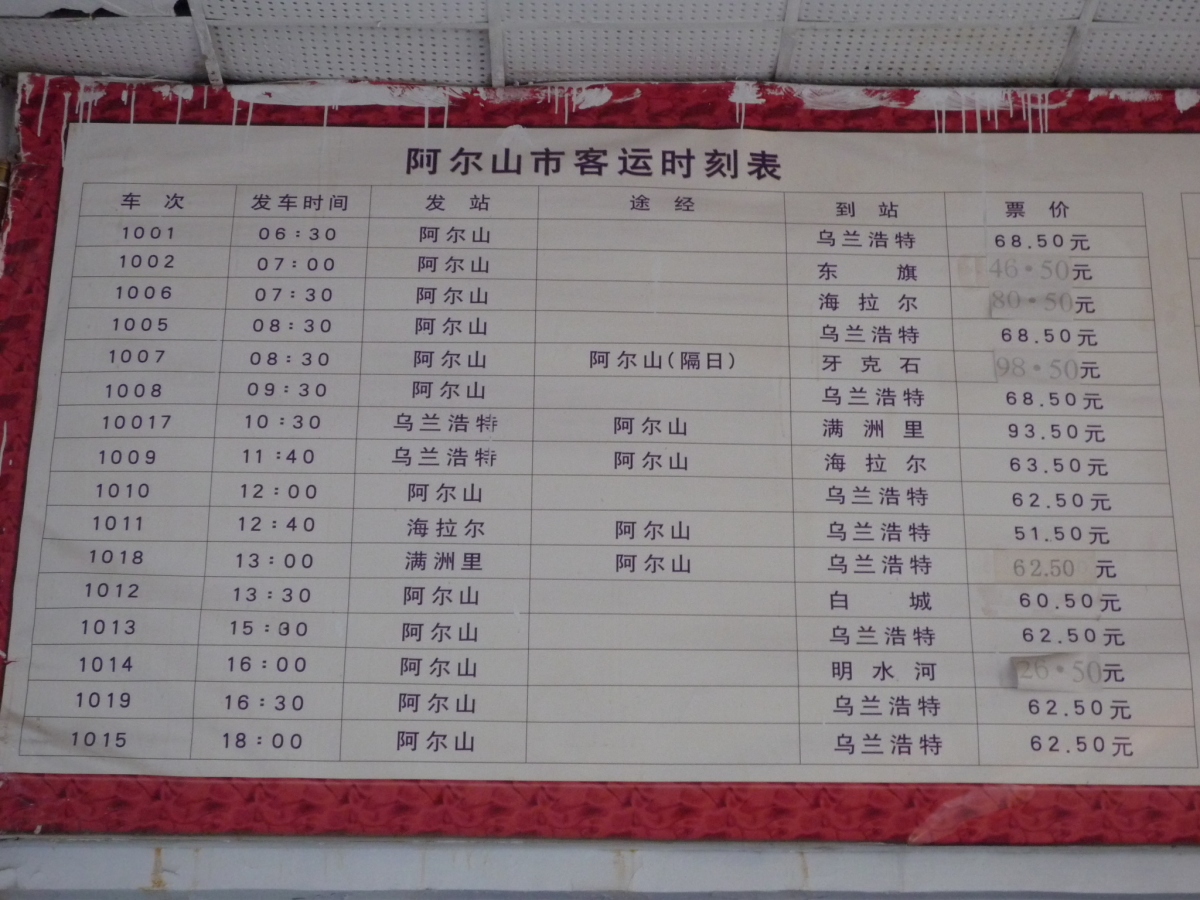 阿尔山市客运时刻表
车次 发车时间 发站 途经 到站 票价
1001 06:30 阿尔山 乌兰浩特 68.50元
1002 07:00 阿尔山 东旗 46.50元
1006 07:30 阿尔山 海拉尔 80.50元
1005 08:30 阿尔山 乌兰浩特 68.50元
1007 08:30 阿尔山 阿尔山(隔日) 牙克石 98.50元
1008 09:30 阿尔山 乌兰浩特 68.50元
10017 10:30 乌兰浩特 阿尔山 满洲里 93.50元
1009 11:40 乌兰浩特 阿尔山 海拉尔 63.50元
1010 12:00 阿尔山 乌兰浩特 62.50元
1011 12:40 海拉尔 阿尔山 乌兰浩特 51.50元
1018 13:00 满洲里 阿尔山 乌兰浩特 62.50元
1012 13:30 阿尔山 白城 60.50元
1013 15:30 阿尔山 乌兰浩特 62.50元
1014 16:00 阿尔山 明水河 26.50元
1019 16:30 阿尔山 乌兰浩特 62.50元
1015 18:00 阿尔山 乌兰浩特 62.50元